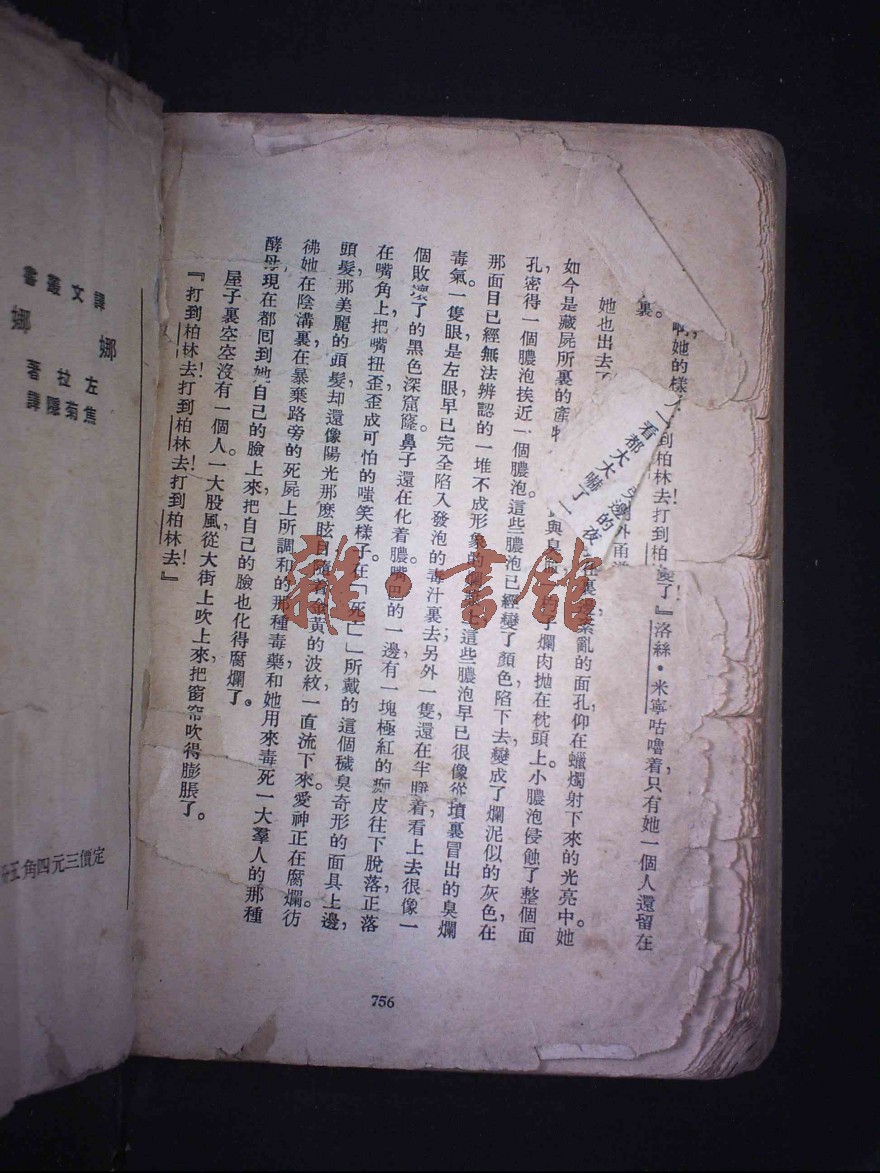 到柏林去！打到柏
啊，她的樣
變了』洛絲·米寧咕嚕着，只有她一個人還留在
裏。
她也出去了
一看都大大嚇了一
的夜
如今是藏屍所裏的產物
亂的面孔，仰在蠟燭射下來的光亮中。她
爛肉抛在枕頭上。小膿泡侵蝕了整個面
孔，密得一個膿泡挨近一個膿泡。這些膿泡已經變了顏色，陷下去，變成了爛泥似的灰色，在
那面目已經無法辨認的一堆不成形象的
上，這些膿泡早已很像從墳裏冒出的臭爛
毒氣。一隻眼，是左眼，早已完全陷入發泡的毒汁裏去；另外一隻，還在半睜着，看上去很像一
個敗壞了的黑色深窟窿。鼻子還在化着膿。嘴巴的一邊，有一塊極紅的痂皮往下脫落，正落
在嘴角上，把嘴扭歪，歪成可怕的嗤笑樣子。在「死亡」所戴的這個穢臭奇形的面具上邊，
頭髮，那美麗的頭髮，却還像陽光那麽眩目，隨着金黃的波紋一直流下來。愛神正在腐爛。彷
彿她在陰溝裏，在暴棄路旁的死屍上，所調和的那種毒藥，和她用來毒死一大羣人的那種
酵母，現在都囘到她自己的臉上來，把自己的臉也化得腐爛了。
屋子裏空空，沒有一個人。一大股風，從大街上吹上來，把窗帘吹得膨脹了。
『打到柏林去！打到柏林去！打到柏林去！』
756
譯文叢書
娜娜
左拉著
焦菊隱譯
定價三元四角五分
雜·書館